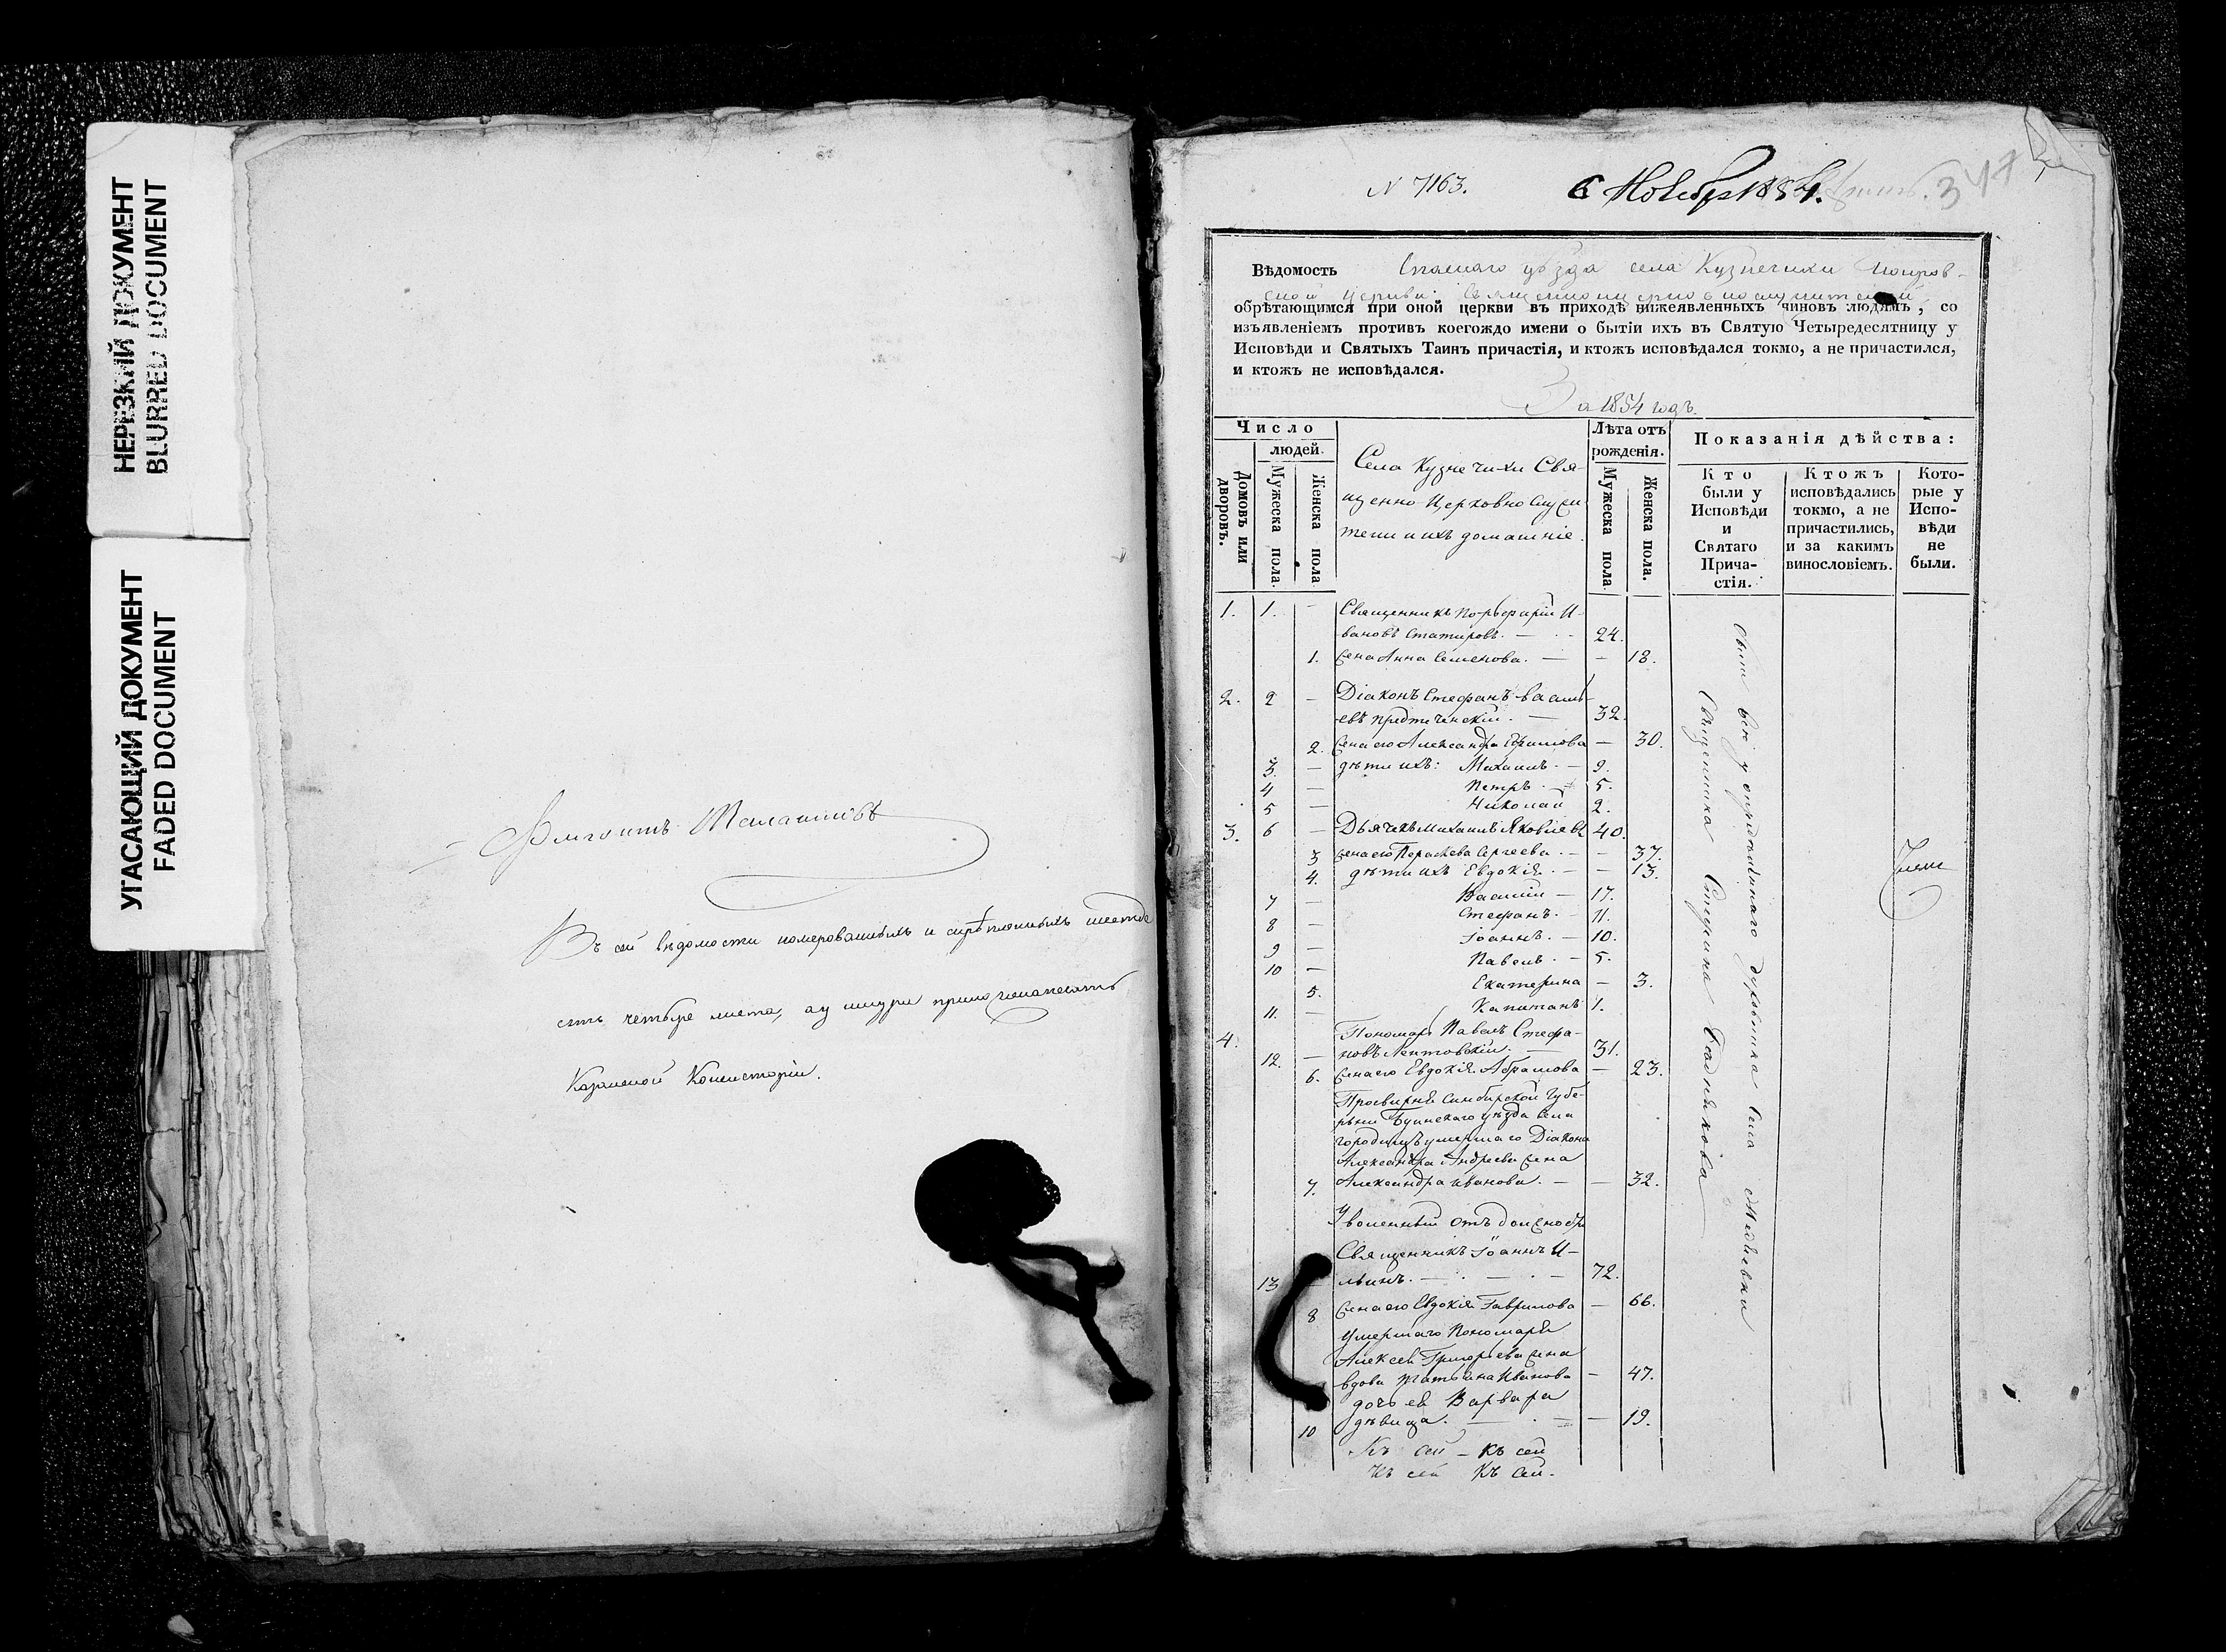 НЕРЕЗКИЙ ДОКУМЕНТ
BLURRED DOCUMENT
УГАСАЮЩИЙ ДОКУМЕНТ
FADED DOCUMENT
Въ сей ведомости номерованныхъ и скрѣпленныхъ шестьде
сятъ четыре листа, а у шнура приложена печать
Казанской Консисторіи.
N 7163.
6 Ноября 1854.
347
Вѣдомость Спаскаго уѣзда села Кузнечихи Покров-
ской Церкви Священноцерковнослужителей,
обрѣтающимся при оной церкви въ приходѣ нижеявленныхъ чиновъ людямъ, со
изъявленіемъ противъ коегождо имени о бытіи ихъ въ Святую Четыредесятницу у
Исповѣди и Святыхъ Таинъ причастія, и ктожъ исповѣдался токмо, а не причастился,
и ктожъ не исповѣдался.
За 1854 годъ.
Число
людей.
Домовъ или дворовъ.
Мужеска пола.
Женска пола
Села Кузнечихи Свя-
щенно Церковно Служи
тели и ихъ домашніе.
Лѣта отъ
рожденія.
Мужеска пола
Женска пола.
Показанія дѣйства:
Кто
были у
Исповѣди
и
Святаго
Прича-
стія.
Ктожъ
исповѣдались
токмо, а не
причастились,
и за какимъ
винословіемъ.
Кото-
рые у
Испо-
вѣди
не
были.
1. 1. - Священникъ Порфирій И-
вановъ Статировъ. — 24.
1. жена Анна Семенова. — - 18.
2. 2 - Діаконъ Стефанъ Василь
евъ Предтеченскій. — 32.
2. жена его Александра Ефимова — 30.
3. — дѣти ихъ: Михаилъ. — 9.
4 — Петръ. — 5.
5 — Николай 2.
3. 6 — Дьячекъ Михаилъ Яковлевъ 40.
3 жена его Параскева Сергеева. — - 37.
4. дѣти ихъ Евдокія. — - 13.
7 — Василій — 17.
8 — Стефанъ. - 11.
9 — Іоаннъ. — 10.
10 — Павелъ. — 5.
5. Екатерина — 3.
11. — Капитанъ 1.
4. Пономарь Павелъ Стефа-
12. — новъ Лентовскій. — 31.
6. жена его Евдокія Абрамова — 23.
Просвирня Симбирской Губе-
рніи Буинскаго уѣзда Села
Городищъ умершаго Діакона
Александра Андреева жена
7. Александра Иванова. — — 32.
Уволенный отъ должности
Священникъ Іоаннъ И-
13 — льинъ. — 72.
8 жена его Евдокія Гаврилова — 66.
Умершаго Пономаря
Алексея Григорьева жена
вдова Татьяна Иванова - 47.
дочь ея Варвара
10 дѣвица. — - 19.
Къ сей - къ сей
Къ сей Къ сей.
Были все у
духовника села
Священника Стефана